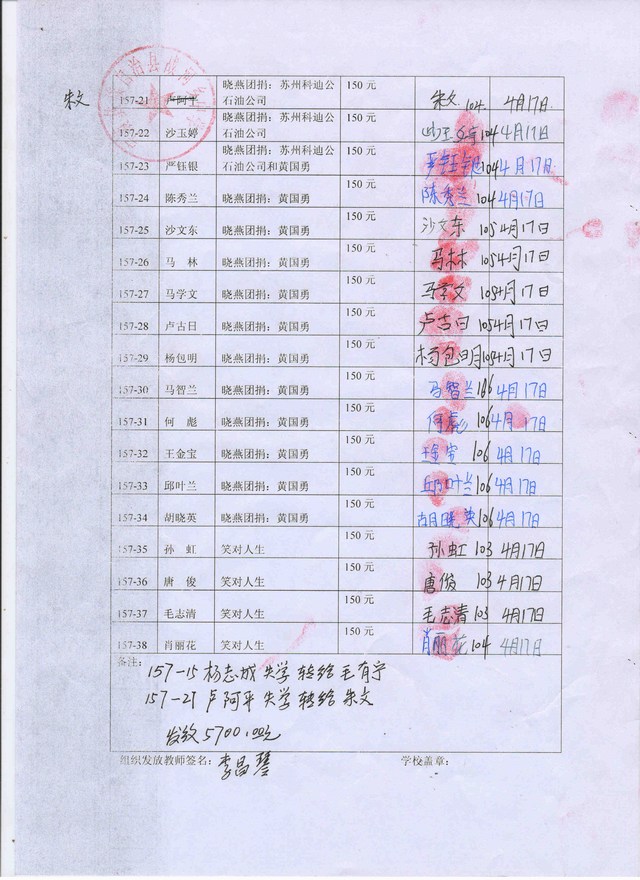 朱文
157-21 卢阿平 晓燕团捐：苏州科迪公石油公司 150 元 朱文 104 4月17日
157-22 沙玉婷 晓燕团捐：苏州科迪公石油公司 150 元 沙玉婷 104 4月17日
157-23 严钰银 晓燕团捐：苏州科迪公石油公司和黄国勇 150 元 严钰银 104 4月17日
157-24 陈秀兰 晓燕团捐：黄国勇 150 元 陈秀兰 104 4月17日
157-25 沙文东 晓燕团捐：黄国勇 150 元 沙文东 105 4月17日
157-26 马 林 晓燕团捐：黄国勇 150 元 马林 105 4月17日
157-27 马学文 晓燕团捐：黄国勇 150 元 马学文 105 4月17日
157-28 卢古日 晓燕团捐：黄国勇 150 元 卢古日 105 4月17日
157-29 杨包明 晓燕团捐：黄国勇 150 元 杨包明 105 4月17日
157-30 马智兰 晓燕团捐：黄国勇 150 元 马智兰 106 4月17日
157-31 何 彪 晓燕团捐：黄国勇 150 元 何彪 106 4月17日
157-32 王金宝 晓燕团捐：黄国勇 150 元 王金宝 106 4月17日
157-33 邱叶兰 晓燕团捐：黄国勇 150 元 邱叶兰 106 4月17日
157-34 胡晓英 晓燕团捐：黄国勇 150 元 胡晓英 106 4月17日
157-35 孙 虹 笑对人生 150 元 孙虹 103 4月17日
157-36 唐 俊 笑对人生 150 元 唐俊 103 4月17日
157-37 毛志清 笑对人生 150 元 毛志清 103 4月17日
157-38 肖丽花 笑对人生 150 元 肖丽花 104 4月17日
备注：
157-15 杨志成 失学 转给 毛有宁
157-21 卢阿平 失学 转给 朱文
发放5700.00元
组织发放教师签名：李昌琴 学校盖章：